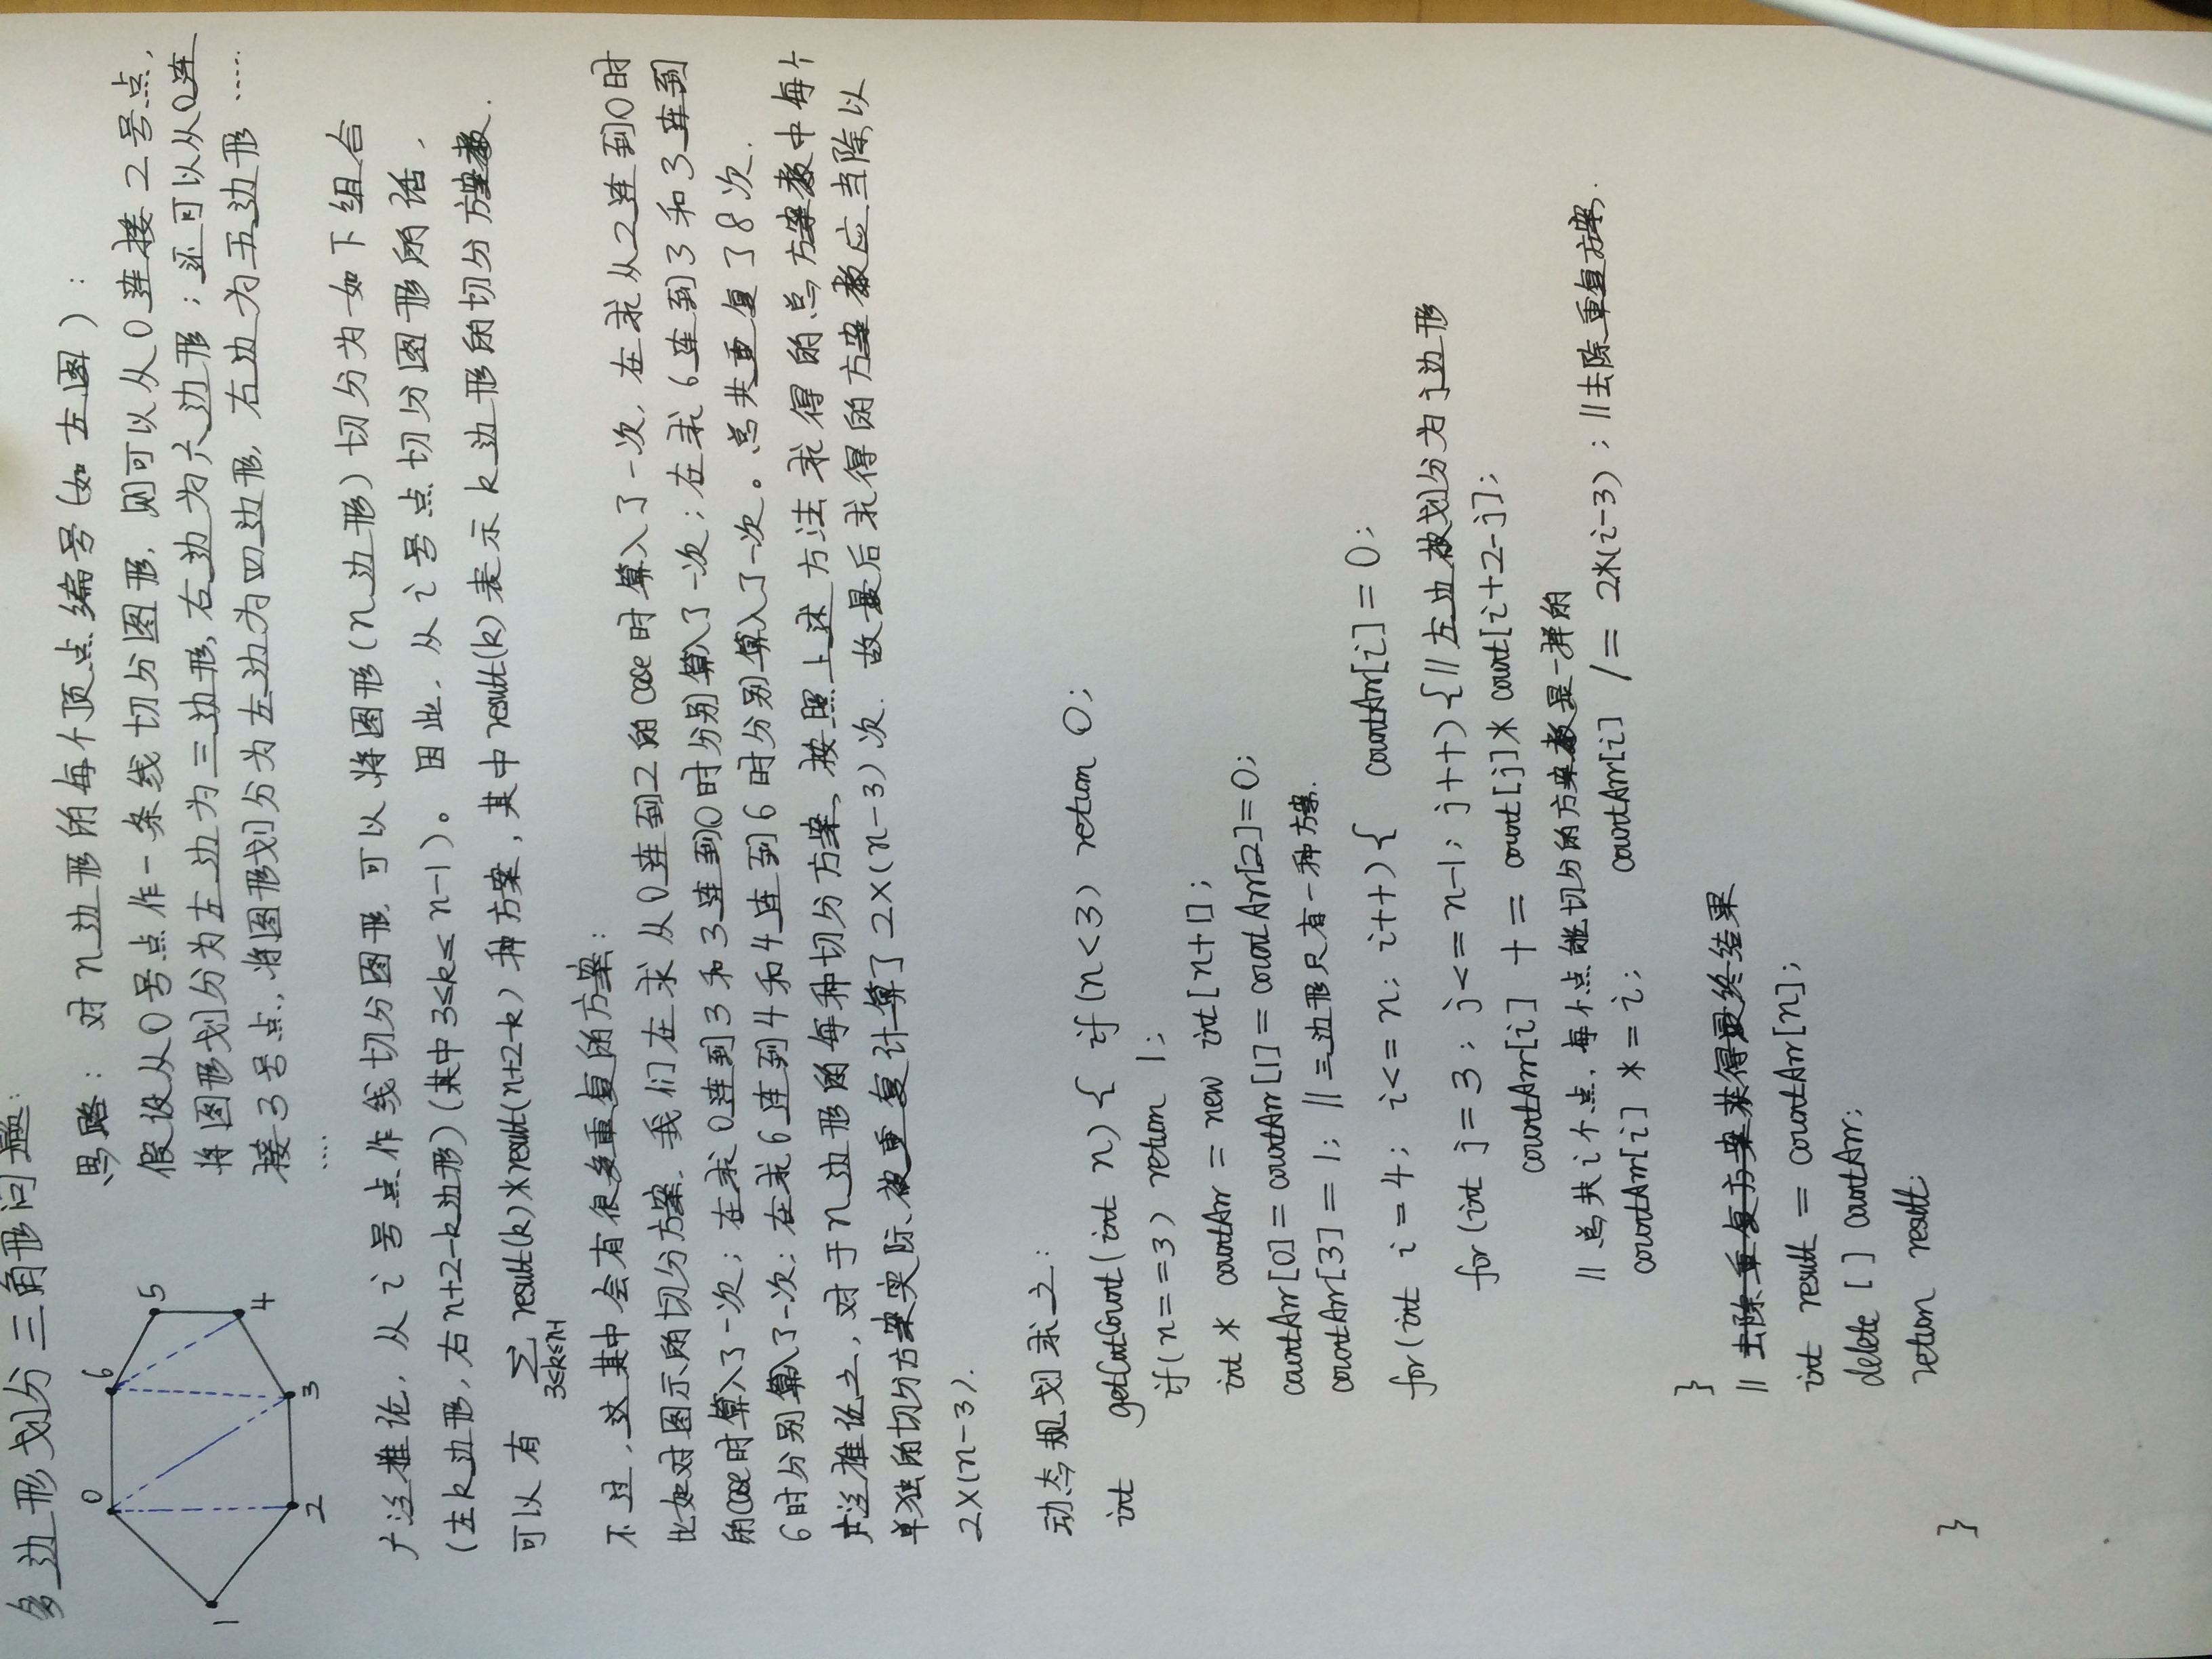 多边形划分三角形问题:
思路: 对n边形的每个顶点编号(如左图):
假设从0号点作一条线切分图形,则可以从0连接2号点,
将图形划分为左边为三边形,右边为六边形;还可以从0连
接3号点,将图形划分为左边为四边形,右边为五边形……
……
0
1
2
3
4
5
6
广泛推论,从i号点作线切分图形,可以将图形(n边形)切分为如下组合
(左k边形,右n+2-k边形)(其中3≤k≤n-1)。因此,从i号点切分图形的话,
可以有 ∑ result(k)×result(n+2-k)种方案,其中result(k)表示k边形的切分方案数.
3≤k≤n-1
不过,这其中会有很多重复的方案:
比如对图示的切分方案,我们在求从0连到2的case时算入了一次,在求从2连到0时
的case时算入了一次;在求0连到3和3连到0时分别算入了一次;在求6连到3和3连到
6时分别算入了一次;在求6连到4和4连到6时分别算入了一次。总共重复了8次.
广泛推论之,对于n边形的每种切分方案,按照上述方法求得的总方案数中每个
单独的切分方案实际被重复计算了2×(n-3)次.故最后求得的方案数应当除以
2×(n-3).
动态规划求之:
int getCutCount(int n) { if(n<3) return 0;
if(n==3) return 1;
int * countArr = new int[n+1];
countArr[0]=countArr[1]=countArr[2]=0;
countArr[3]=1; //三边形只有一种方案.
for(int i=4; i<=n; i++) { countArr[i]=0;
for(int j=3; j<=n-1; j++) {//左边被划分为j边形
countArr[i] += count[j]*count[i+2-j];
//总共i个点,每个点能切分的方案数是一样的
countArr[i] *= i; countArr[i] /= 2*(i-3); //去除重复方案.
}
//去除重复方案求得最终结果
int result = countArr[n];
delete [] countArr;
return result;
}